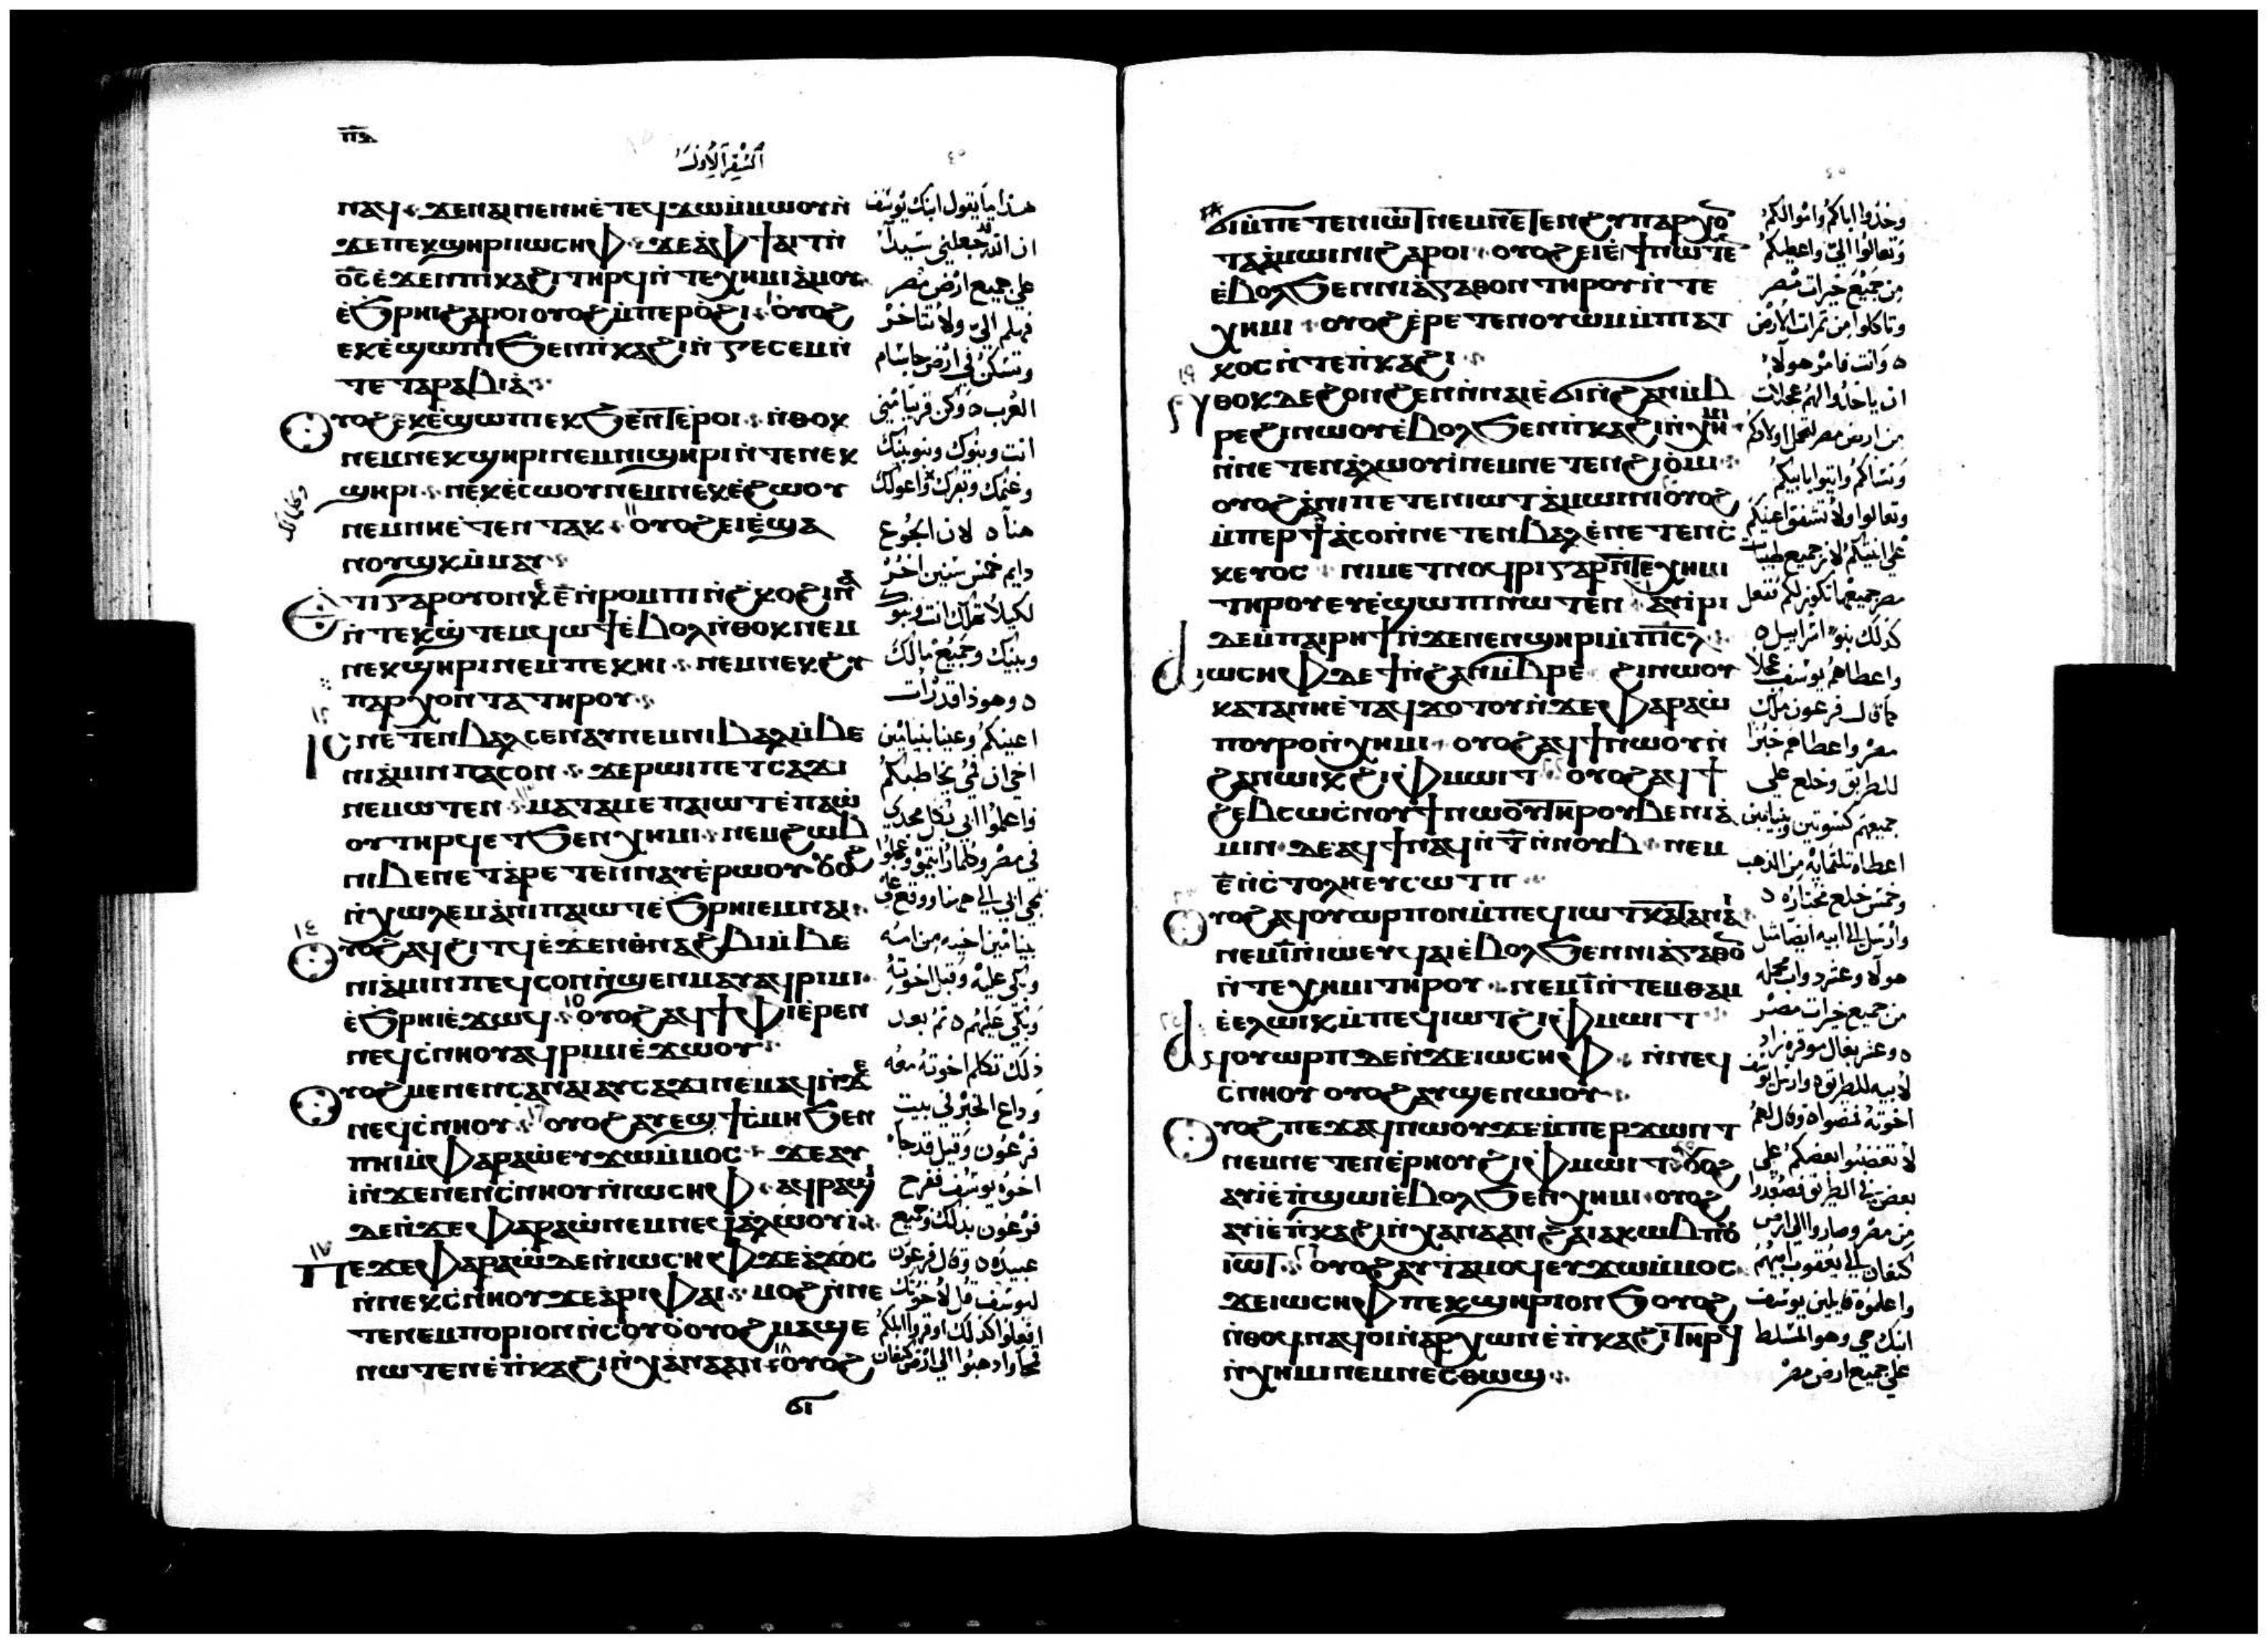 ⲡ̅ⲋ̅
السفر الاول
ⲛⲁϥ ϫⲉ ⲛⲁⲓ ⲛⲉ ⲛⲏ ⲉ̀ⲧⲉϥϫⲱ ⲙ̀ⲙⲱⲟⲩ ⲛ̀
ϫⲉ ⲡⲉⲕϣⲏⲣⲓ ⲓⲱⲥⲏⲫ ϫⲉ ⲁ̀ ⲫϯ ⲁⲓⲧ ⲛ̀
ⲟ̅ⲥ̅ ⲉ̀ϫⲉⲛ ⲡⲕⲁϩⲓ ⲧⲏⲣϥ ⲛ̀ⲧⲉ ⲭⲏⲙⲓ ⲁ̀ⲙⲟⲩ
ⲉ̀ϧⲣⲏⲓ ϩⲁⲣⲟⲓ ⲟⲩⲟϩ ⲙ̀ⲡⲉⲣⲟ̀ϩⲓ ⲟⲩⲟϩ
ⲉⲕⲉ̀ϣⲱⲡⲓ ϧⲉⲛ ⲡ̀ⲕⲁϩⲓ ⲛ̀ⲅⲉⲥⲉⲙ ⲛ̀
ⲧⲉ ⲧⲁⲣⲁⲃⲓⲁ̀
ⲟⲩⲟϩ ⲉⲕⲉ̀ϣⲱⲡ ⲉⲕϧⲉⲛⲧ ⲉ̀ⲣⲟⲓ ⲛ̀ⲑⲟⲕ
ⲛⲉⲙ ⲛⲉⲕϣⲏⲣⲓ ⲛⲉⲙ ⲛⲓϣⲏⲣⲓ ⲛ̀ⲧⲉ ⲛⲉⲕ
ϣⲏⲣⲓ ⲛⲉⲕⲉ̀ⲥⲱⲟⲩ ⲛⲉⲙ ⲛⲉⲕⲉ̀ϩⲱⲟⲩ
ⲛⲉⲙ ⲛⲏ ⲉ̀ⲧⲉⲛⲧⲁⲕ ⲟⲩⲟϩ ⲉⲓⲉ̀ϣⲁ
ⲛⲟⲩϣⲕ ⲙ̀ⲙⲁⲩ
ⲉⲧⲓ ⲅⲁⲣ ⲟⲩⲟⲛ ⲕⲉ ⲉ̅ ⲛ̀ⲣⲟⲙⲡⲓ ⲛ̀ϩⲕⲟ ϩⲓⲛⲁ
ⲛ̀ⲧⲉⲕϣ̀ⲧⲉⲙϥⲱϯ ⲉ̀ⲃⲟⲗ ⲛ̀ⲑⲟⲕ ⲛⲉⲙ
ⲛⲉⲕϣⲏⲣⲓ ⲛⲉⲙ ⲡⲉⲕⲏⲓ ⲛⲉⲙ ⲛⲉⲕϩⲩ
ⲡⲁⲣⲭⲟⲛⲧⲁ ⲧⲏⲣⲟⲩ
ⲓⲥ ⲛⲉⲧⲉⲛⲃⲁⲗ ⲥⲉⲛⲁⲩ ⲛⲉⲙ ⲛⲓⲃⲁⲗ ⲙ̀ⲃⲉ
ⲛⲓⲁ̀ⲙⲓⲛ ⲡⲁⲥⲟⲛ ϫⲉ ⲣⲱⲓ ⲡⲉⲧⲥⲁϫⲓ
ⲛⲉⲙⲱⲧⲉⲛ ⲙⲁⲧⲁⲙⲉ ⲡⲁⲓⲱⲧ ⲉ̀ⲡⲁⲱ̀
ⲟⲩ ⲧⲏⲣϥ ⲉⲧϧⲉⲛ ⲭⲏⲙⲓ ⲛⲉⲙ ϩⲱⲃ
ⲛⲓⲃⲉⲛ ⲉⲧⲁⲣⲉⲧⲉⲛⲛⲁⲩ ⲉ̀ⲣⲱⲟⲩ ⲟⲩⲟϩ
ⲛ̀ⲭⲱⲗⲉⲙ ⲁ̀ⲛⲓ ⲡⲁⲓⲱⲧ ⲉ̀ϧⲣⲏⲓ ⲉⲙⲛⲁⲓ
ⲟⲩⲟϩ ⲁϥϩⲓⲧϥ ⲉ̀ϫⲉⲛ ⲑⲛⲁϩⲃⲓ ⲙ̀ⲃⲉ
ⲛⲓⲁ̀ⲙⲓⲛ ⲡⲉϥⲥⲟⲛ ⲛ̀ϣⲉⲛⲙⲁⲩ ⲁϥⲣⲓⲙⲓ
ⲉ̀ϧⲣⲏⲓ ⲉ̀ϫⲱϥ ⲟⲩⲟϩ ⲁϥϯⲫⲓ ⲉ̀ⲣⲉⲛ
ⲛⲉϥⲥ̀ⲛⲏⲟⲩ ⲁϥⲣⲓⲙⲓ ⲉ̀ϫⲱⲟⲩ
ⲟⲩⲟϩ ⲙⲉⲛⲉⲛⲥⲁ ⲛⲁⲓ ⲁⲩⲥⲁϫⲓ ⲛⲉⲙⲁϥ ⲛ̀ϫⲉ
ⲛⲉϥⲥ̀ⲛⲏⲟⲩ ⲟⲩⲟϩ ⲁⲩⲉϣϯⲥ̀ⲙⲏ ϧⲉⲛ
ⲡⲏⲓ ⲙ̀ⲫⲁⲣⲁⲱ̀ ⲉⲩϫⲱ ⲙ̀ⲙⲟⲥ ϫⲉ ⲁⲩ
ⲓ̀ ⲛ̀ϫⲉ ⲛⲉⲛⲥ̀ⲛⲏⲟⲩ ⲛ̀ⲓⲱⲥⲏⲫ ⲁϥⲣⲁϣⲓ
ⲇⲉ ⲛ̀ϫⲉ ⲫⲁⲣⲁⲱ̀ ⲛⲉⲙ ⲛⲉϥⲁ̀ⲗⲱⲟⲩⲓ̀
ⲡⲉϫⲉ ⲫⲁⲣⲁⲱ̀ ⲇⲉ ⲛ̀ⲓⲱⲥⲏⲫ ϫⲉ ⲁ̀ϫⲟⲥ
ⲛ̀ⲛⲉⲕⲥ̀ⲛⲏⲟⲩ ϫⲉ ⲁ̀ⲣⲓ ⲫⲁⲓ ⲙⲟϩ ⲛ̀ⲛⲉ
ⲧⲉⲛⲉⲙⲡⲟⲣⲓⲟⲛ ⲛ̀ⲥⲟⲩⲟ̀ ⲟⲩⲟϩ ⲙⲁϣⲉ
ⲛⲱⲧⲉⲛ ⲉ̀ⲡ̀ⲕⲁϩⲓ ⲛ̀ⲭⲁⲛⲁⲁⲛ ⲟⲩⲟϩ
ϭⲓ
هذا ما يقول ابنك يوسف
ان الله قد جعلني سيدا
علي جميع ارض مصر
فهلم الي ولا تتاخر
وتسكن في ارض جاسام
العرب ٥ وكن قريبا مني
انت وبنوك وبنو بنيك
وغنمك وبقرك واعوالك
هنا ٥ لان الجوع
دايم خمس سنين اخر
لكيلا تهلك انت وبنو
وبيتك وجميع مالك
٥ وهوذا قد رات
اعينكم وعينا بنيامين
اخي ان فمي يخاطبكم
واعلموا ابي بكل مجدي
في مصر وكلما رايتموه وعجلوا
بمجي ابي الي ههنا ووقع علي
بنيامين اخيه من امه
وبكي عليه وقبل اخوته
وبكي عليهم ٥ ثم بعد
ذلك تكلم اخوته معه
وذاع الخبر في بيت
فرعون وقيل قد جا
اخوة يوسف ففرح
فرعون بذلك وجميع
عبيده ٥ وقال فرعون
ليوسف قل لاخوتك
افعلوا كذلك اوقروا ابلكم
قمحا واذهبوا الي ارض كنعان
ϭⲓ ⲙ̀ⲡⲉⲧⲉⲛⲓⲱⲧ ⲛⲉⲙ ⲛⲉⲧⲉⲛϩⲩⲡⲁⲣⲭⲟ
ⲧⲁ ⲁ̀ⲙⲱⲓⲛⲓ ϩⲁⲣⲟⲓ ⲟⲩⲟϩ ⲉⲓⲉ̀ϯ ⲛⲱⲧⲉ
ⲉ̀ⲃⲟⲗϧⲉⲛ ⲛⲓⲁ̀ⲅⲁⲑⲟⲛ ⲧⲏⲣⲟⲩ ⲛ̀ⲧⲉ
ⲭⲏⲙⲓ ⲟⲩⲟϩ ⲉ̀ⲣⲉⲧⲉⲛⲟⲩⲱⲙ ⲙ̀ⲡⲓⲁⲧ
ⲕⲟⲥ ⲛ̀ⲧⲉ ⲡ̀ⲕⲁϩⲓ
ⲛⲑⲟⲕ ⲇⲉ ϩⲟⲛϩⲉⲛ ⲛ̀ⲛⲁⲓ ⲉ̀ϭⲓ ⲛ̀ϩⲁⲛⲙ̀ⲃ
ⲣⲉϩⲓ ⲛⲱⲟⲩ ⲉ̀ⲃⲟⲗϧⲉⲛ ⲡ̀ⲕⲁϩⲓ ⲛ̀ⲭⲏⲙⲓ
ⲛ̀ⲛⲉⲧⲉⲛⲁ̀ⲗⲱⲟⲩⲓ̀ ⲛⲉⲙ ⲛⲉⲧⲉⲛϩⲓⲟ̀ⲙⲓ
ⲟⲩⲟϩ ⲁ̀ⲛⲓ ⲡⲉⲧⲉⲛⲓⲱⲧ ⲁ̀ⲙⲱⲓⲛⲓ ⲟⲩⲟϩ
ⲙ̀ⲡⲉⲣϯⲁ̀ⲥⲟ ⲛ̀ⲛⲉⲧⲉⲛⲃⲁⲗ ⲉ̀ⲛⲉⲧⲉⲛⲥ̀
ⲕⲉⲩⲟⲥ ⲛⲓⲡⲉⲧⲛⲁϥⲣⲓ ⲅⲁⲣ ⲛ̀ⲧⲉ ⲭⲏⲙⲓ
ⲧⲏⲣⲟⲩ ⲉⲩⲉ̀ϣⲱⲡⲓ ⲛⲱⲧⲉⲛ ⲁⲩⲓ̀ⲣⲓ
ⲇⲉ ⲙ̀ⲡⲁⲓⲣⲏϯ ⲛ̀ϫⲉ ⲛⲉⲛϣⲏⲣⲓ ⲙ̀ⲡ̅ⲓ̅ⲥ̅ⲗ̅
ⲁ ⲓⲱⲥⲏⲫ ⲇⲉ ϯ ⲛ̀ϩⲁⲛⲙ̀ⲃⲣⲉϩⲓ ⲛⲱⲟⲩ
ⲕⲁⲧⲁ ⲛⲏ ⲉ̀ⲧⲁϥϫⲟⲧⲟⲩ ⲛ̀ϫⲉ ⲫⲁⲣⲁⲱ̀
ⲡⲟⲩⲣⲟ ⲛ̀ⲭⲏⲙⲓ ⲟⲩⲟϩ ⲁϥϯ ⲛⲱⲟⲩ ⲛ̀
ϩⲁⲛⲱⲓⲕ ϩⲓ ⲫⲙⲱⲓⲧ ⲟⲩⲟϩ ⲁϥϯ
ϩⲉⲃⲥⲱ ⲥ̀ⲛⲟⲩϯ ⲛⲱⲟⲩ ⲧⲏⲣⲟⲩ ⲃⲉⲛⲓⲁ̀
ⲙⲓⲛ ⲇⲉ ⲁϥϯ ⲛⲁϥ ⲛ̀ⲧ̅ ⲛ̀ⲛⲟⲩⲃ ⲛⲉⲙ
ⲉ̅ ⲛ̀ⲥ̀ⲧⲟⲗⲏ ⲉⲩⲥⲱⲧⲡ
ⲟⲩⲟϩ ⲁϥⲟⲩⲱⲣⲡ ⲟⲛ ⲙ̀ⲡⲉϥⲓⲱⲧ ⲕⲁⲧⲁ ⲛⲁⲓ
ⲛⲉⲙ ⲓ̅ ⲛ̀ⲓⲱ ⲉⲩϥⲁⲓ ⲉ̀ⲃⲟⲗϧⲉⲛ ⲛⲓⲁ̀ⲅⲁⲑⲟ
ⲛ̀ⲧⲉ ⲭⲏⲙⲓ ⲧⲏⲣⲟⲩ ⲛⲉⲙ ⲓ̅ ⲛ̀ⲧⲉⲙⲑⲁⲙ
ⲉ̀ⲉⲗⲱⲓⲕ ⲙ̀ⲡⲉϥⲓⲱⲧ ϩⲓ ⲫⲙⲱⲓⲧ
ⲁϥⲟⲩⲱⲣⲡ ⲇⲉ ⲛ̀ϫⲉ ⲓⲱⲥⲏⲫ ⲛ̀ⲛⲉϥ
ⲥ̀ⲛⲏⲟⲩ ⲟⲩⲟϩ ⲁⲩϣⲉⲛⲱⲟⲩ
ⲟⲩⲟϩ ⲡⲉϫⲁϥ ⲛⲱⲟⲩ ϫⲉ ⲙ̀ⲡⲉⲣϫⲱⲛⲧ
ⲛⲉⲙ ⲛⲉⲧⲉⲛⲉ̀ⲣⲏⲟⲩ ϩⲓ ⲫⲙⲱⲓⲧ ⲟⲩⲟϩ
ⲁⲩⲓ̀ ⲉ̀ⲡ̀ϣⲱⲓ ⲉ̀ⲃⲟⲗϧⲉⲛ ⲭⲏⲙⲓ ⲟⲩⲟϩ
ⲁⲩⲓ̀ ⲉ̀ⲡ̀ⲕⲁϩⲓ ⲛ̀ⲭⲁⲛⲁⲁⲛ ϩⲁ ⲓⲁⲕⲱⲃ ⲡⲟⲩ
ⲓⲱⲧ ⲟⲩⲟϩ ⲁⲩⲧⲁⲙⲟϥ ⲉⲩϫⲱ ⲙ̀ⲙⲟⲥ
ϫⲉ ⲓⲱⲥⲏⲫ ⲡⲉⲕϣⲏⲣⲓ ⲟⲛϧ ⲟⲩⲟϩ
ⲛ̀ⲑⲟϥ ⲛⲁϥⲟⲓ ⲛ̀ⲁⲣⲭⲱⲛ ⲉ̀ⲡ̀ⲕⲁϩⲓ ⲧⲏⲣϥ
ⲛ̀ⲭⲏⲙⲓ ⲛⲉⲙ ⲛⲉⲥⲑⲱϣ
وخذوا اباكم واموالكم
وتعالوا الي واعطيكم
من جميع خيرات مصر
وتاكلوا من ثمرات الارض
٥ وانت فامر هولا
ان ياخذوا لهم عجلات
من ارض مصر لحمل اولادكم
ونساكم واتوا بابيكم
وتعالوا ولا تشفق اعينكم
علي انيتكم لان جميع طيبات
مصر جميعها تكون لكم ففعل
كذلك بنو اسراييل ٥
واعطاهم يوسف عجلا
كما قال فرعون ملك
مصر واعطاهم خبزا
للطريق وخلع علي
جميعهم كسوتين وبنيامين
اعطاه ثلثماية من الذهب
وخمس خلع مختاره ٥
وارسل الي ابيه ايضا مثل
هولا وعشر دواب محمله
من جميع خيرات مصر
٥ وعشر بغال موقره زاد
لابيه للطريق ٥ وارسل يوسف
اخوته فمضوا ٥ وقال لهم
لا تغضبوا بعضكم علي
بعض في الطريق فصعدوا
من مصر وصاروا الي ارض
كنعان الي يعقوب ابيهم
واعلموه قايلين يوسف
ابنك حي وهو المسلط
علي جميع ارض مصر